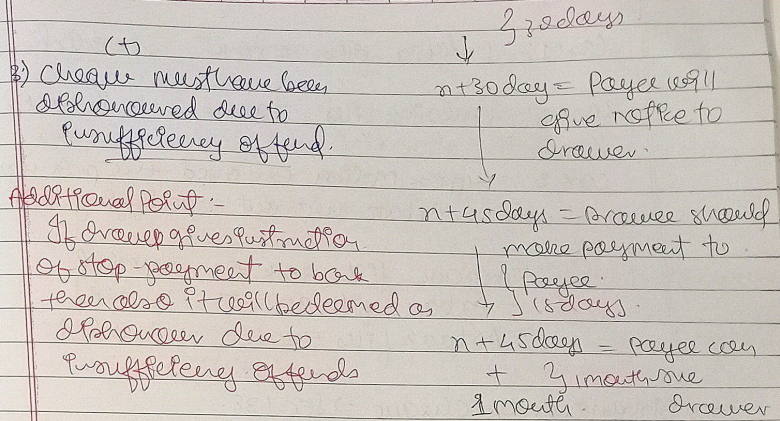 (+)
3) Cheque must have been
dishonoured due to
insufficiency of fund.
Additional Point :-
If drawer gives instruction
of stop-payment to bank
then also it will be deemed as
dishonour due to
insufficiency of funds
} 30 days
n+30 day = Payee will
give notice to
drawer.
n+45 days = drawee should
make payment to
{ payee.
} 15 days.
n+45 days = payee can
+ } 1 month sue
1 month. drawer